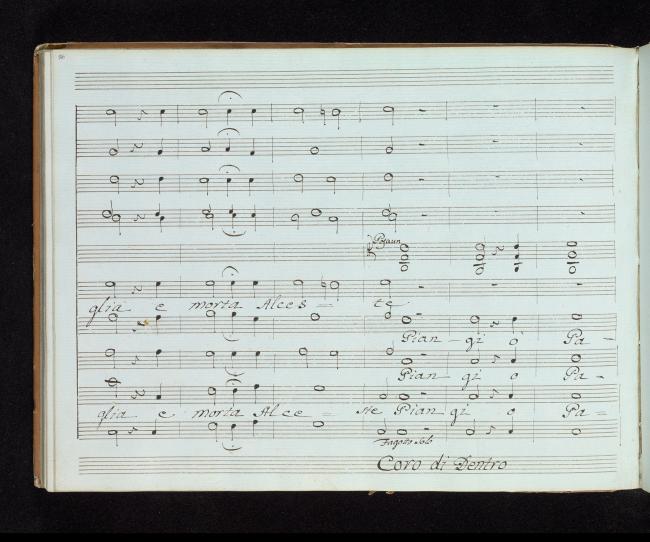 Posaun
glia e morta Alces = te
Pian - gi ò Pa -
Pian gi o Pa -
glia e morta Alce = ste Pian gi o Pa =
Fagotto Solo
Coro di Dentro